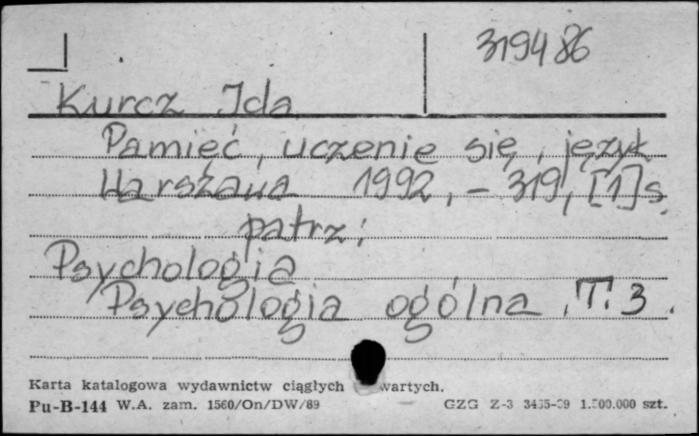 319486
Kurcz Ida
Pamięć, uczenie się, język
Warszawa 1992, - 319, [1] s.
patrz:
Psychologia
Psychologia ogólna, T. 3.
Karta katalogowa wydawnictw ciągłych wartych.
Pu-B-144 W.A. zam. 1560/On/DW/89 GZG Z-3 1.500.000 szt.